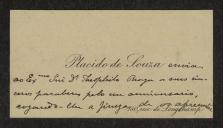 Placido de Souza envia
ao Ex.mo Snr Dr Theophilo Braga o seus sin
ceros parabens pelo seu anniversario,
rogando-lhe a fineza de o
rue de Longchamp